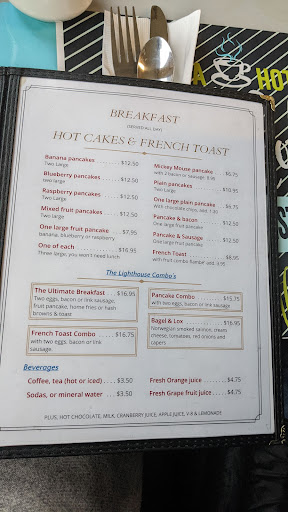 BREAKFAST
(SERVED ALL DAY)
HOT CAKES & FRENCH TOAST
Banana pancakes . . . . . $12.50
Two Large
Blueberry pancakes . . . . $12.50
Two large
Raspberry pancakes . . . . $12.50
Two large
Mixed fruit pancakes . . . $12.50
Two large
One large fruit pancake . . $7.95
banana, blueberry or raspberry
One of each . . . . . . . . $16.95
Three large, you won't need lunch
Mickey Mouse pancake . . $6.75
with 2 bacon or sausage
Plain pancakes . . . . . . $10.95
Two large
One large plain pancake . . $6.75
With chocolate chips, add. 1.30
Pancake & bacon . . . . . $12.50
One large fruit pancake
Pancake & Sausage . . . . $12.50
One large fruit pancake
French Toast . . . . . . . $8.95
with fruit combo
The Lighthouse Combo's
The Ultimate Breakfast . . . $16.95
Two eggs, bacon or link sausage,
fruit pancake, home fries or hash
browns & toast
French Toast Combo . . . . $16.75
with two eggs, bacon or link
sausage.
Pancake Combo . . . . . $15.75
with two eggs, bacon or link sausage
Bagel & Lox . . . . . . . $16.95
Norwegian smoked salmon, cream
cheese, tomatoes, red onions and
capers
Beverages
Coffee, tea (hot or iced) . . . . $3.50
Sodas, or mineral water . . $3.50
Fresh Orange juice . . . . . $4.75
Fresh Grape fruit juice . . . $4.75
PLUS, HOT CHOCOLATE, MILK, CRANBERRY JUICE, APPLE JUICE, V-8 & LEMONADE
A
HOT